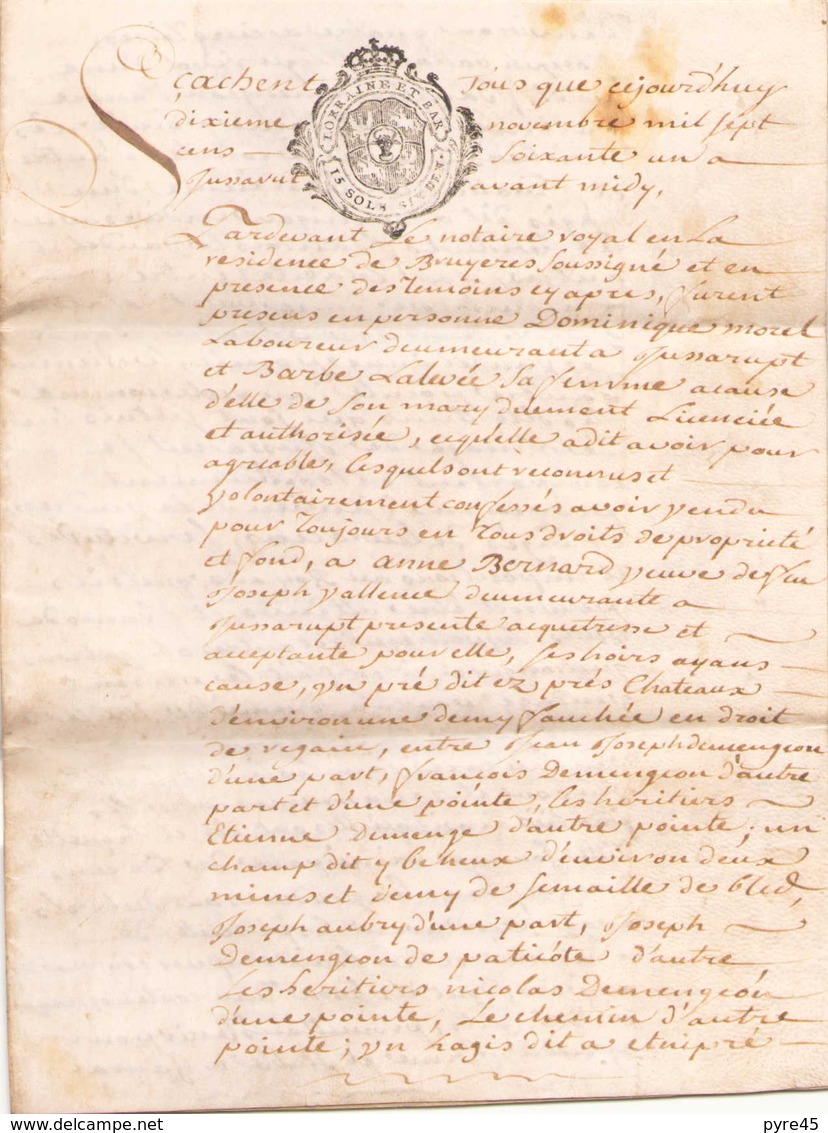 Sçachent Tous que cejourd'huy
dixieme novembre mil sept
cens soixante un a
Jussarut avant midy,
LORRAINE ET BAR
15 SOLS SIX DEN
Pardevant Le notaire royal en La
residence de Bruyeres soussigné et en
presence des Temoins cy apres, furent
presens en personne Dominique morel
Laboureur demeurant a Jussarupt
et Barbe Lalevée sa femme acause
d'elle de son mary duement Licenciée
et authorisée, cequ'elle a dit avoir pour
agréable, lesquels ont reconnus et
volontairement confessés avoir vendu
pour Toujours en Tous droits de proprieté
et fond, a anne Bernard veuve de feu
Joseph vallence demeurante a
Jussarupt presente acquetresse et
acceptante pour elle, ses hoirs ayans
cause, yn pré dit ez prés Chateaux
d'environ une demy fauchée en droit
de regain, entre Jean Joseph demengeon
d'une part, françois Demengeon d'autre
part et d'une pointe, les heritiers
Etienne Demenge d'autre pointe; un
champ dit y beheux d'environ deux
mines et demy de semaille de bled,
Joseph aubry d'une part, Joseph
Demengeon de paticôte d'autre
Les heritiers nicolas Demengeon
d'une pointe, Le chemin d'autre
pointe; yn hagis dit a etnipré
pyre45